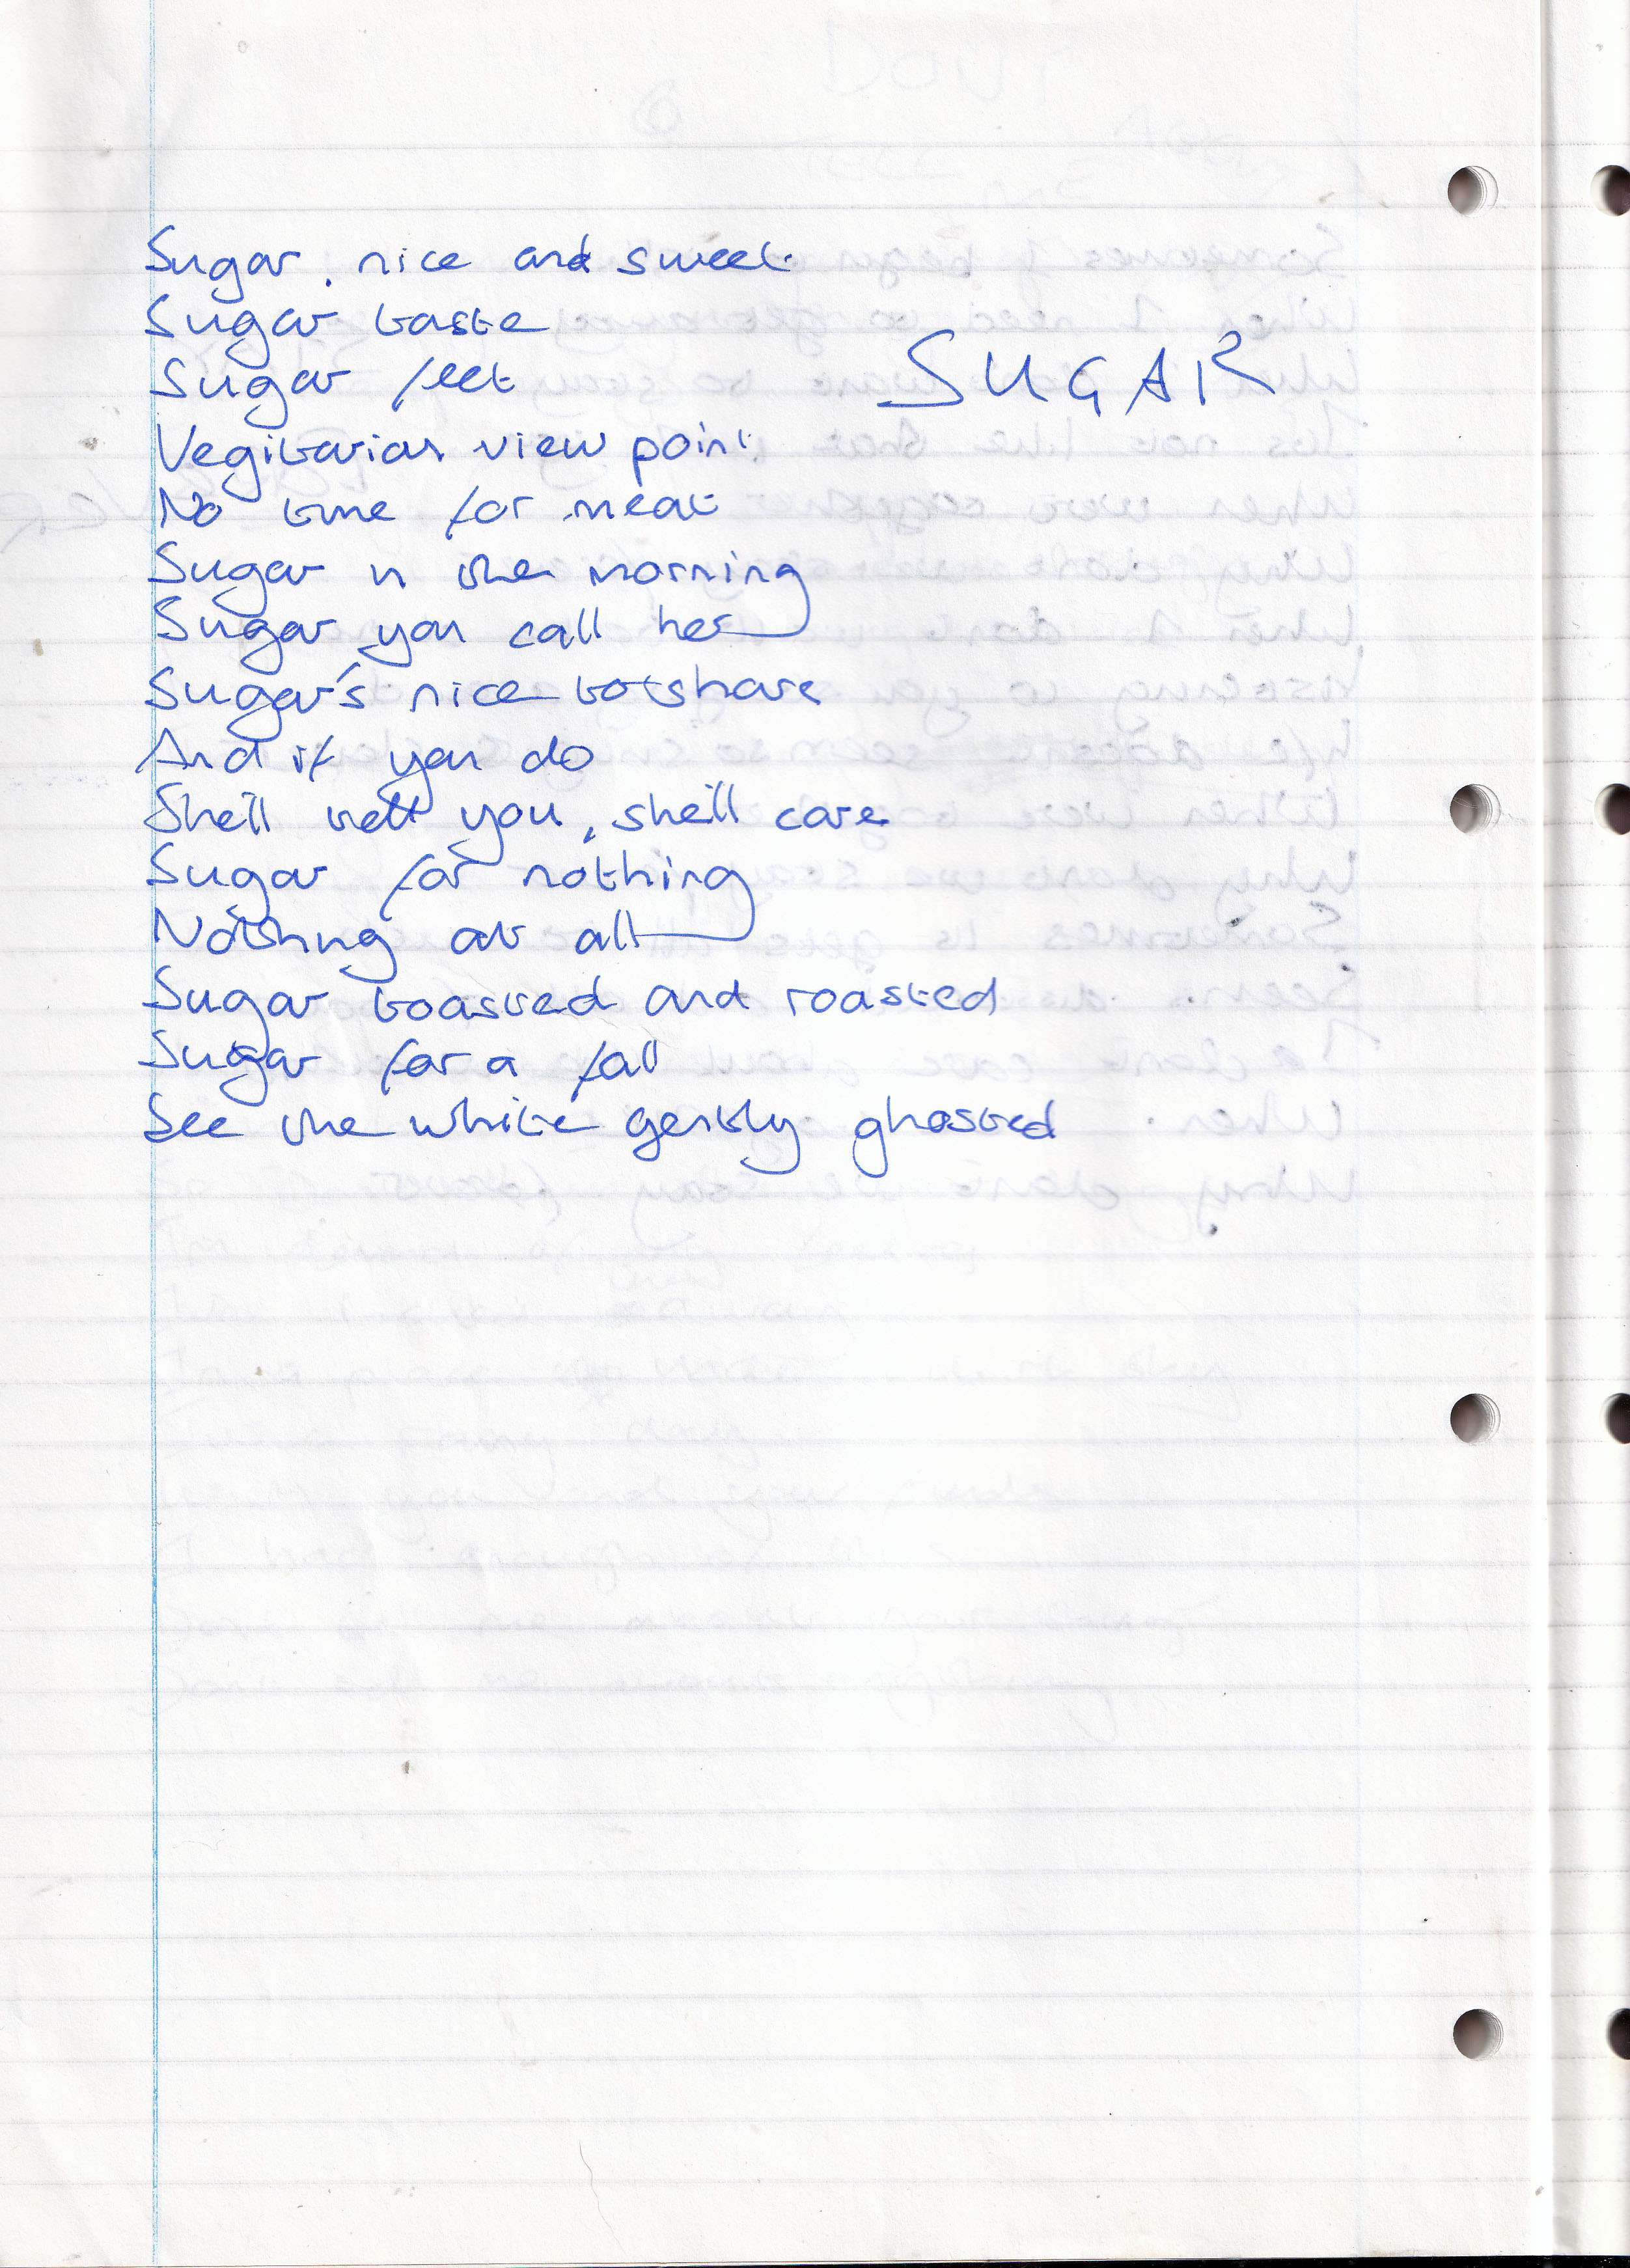 Sugar, nice and sweet
Sugar taste
Sugar feet
SUGAR
Vegitarian view point
No time for meat
Sugar in the morning
Sugar you call her
Sugar's nice to share
And if you do
She'll tell you, she'll care
Sugar for nothing
Nothing at all
Sugar toasted and roasted
Sugar for a fall
See the white gently ghosted